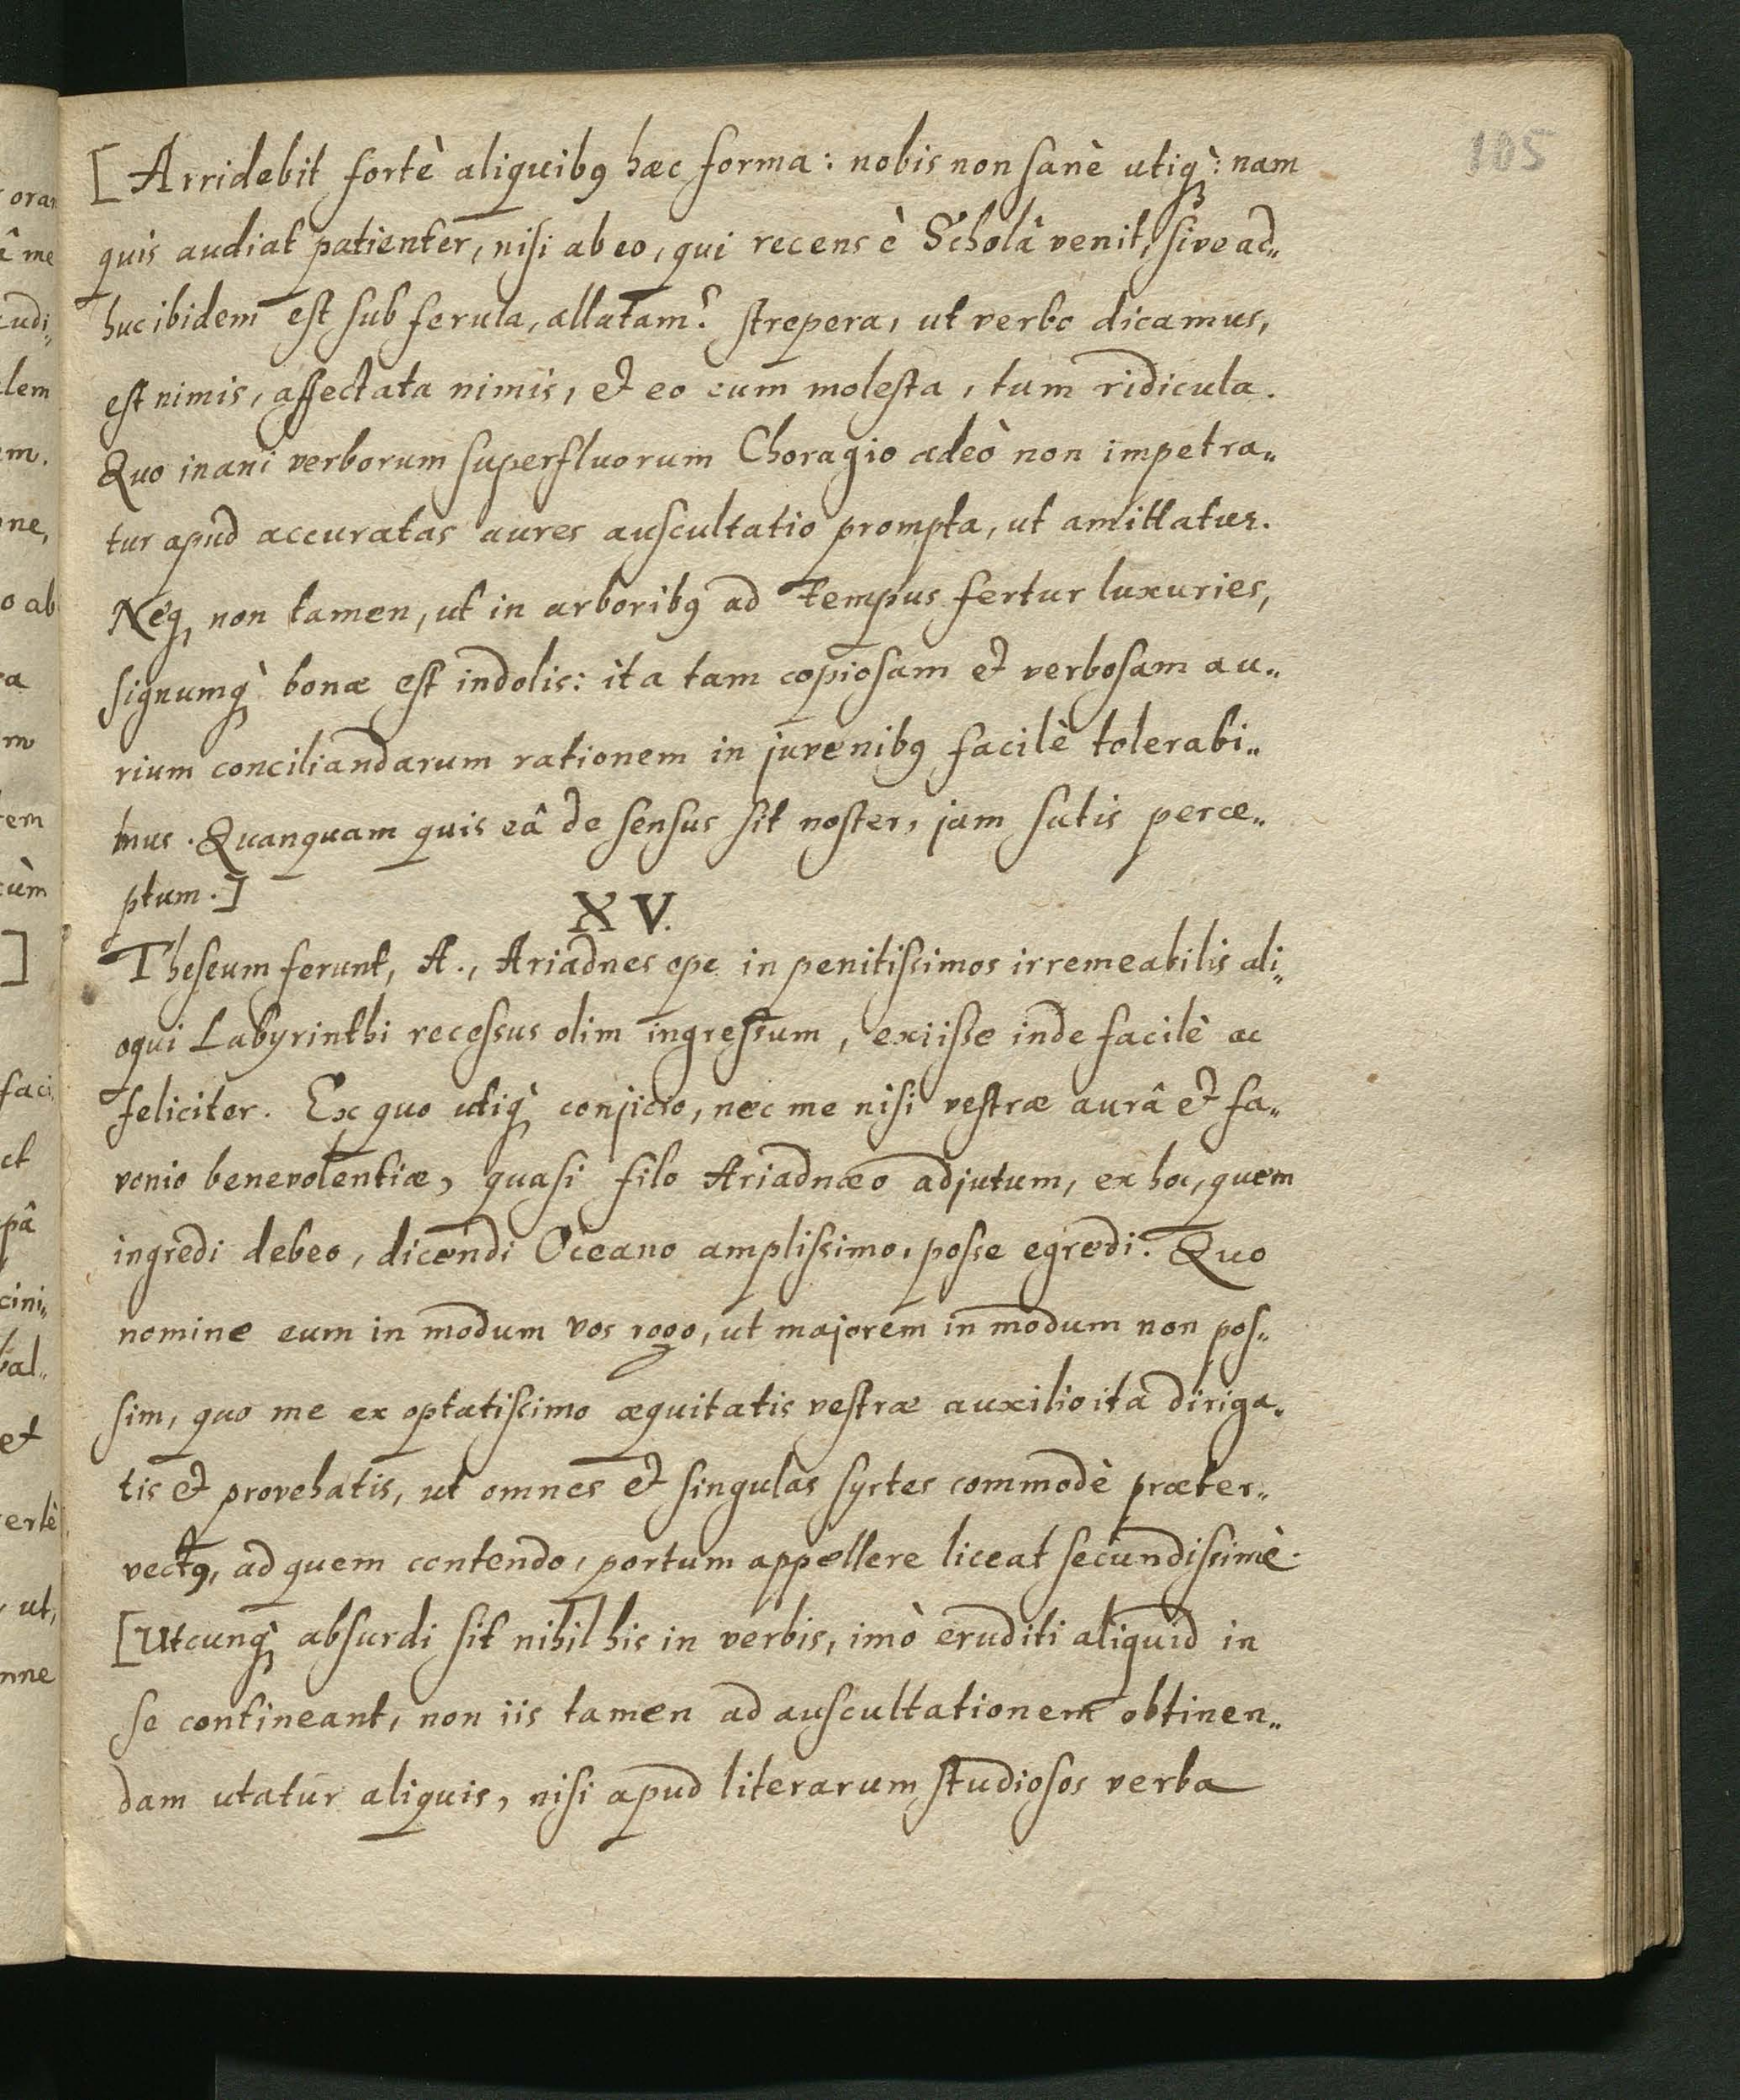 105
[Arridebit fortè aliquibꝰ hæc forma: nobis non sanè utiqꝫ̀: nam
quis audiat patienter, nisi ab eo, qui recens è Scholâ venit, sive ad„
huc ibidem est sub ferula, allatam? strepera, ut verbo dicamus,
est nimis, affectata nimis, et eo cum molesta, tum ridicula.
Quo inani verborum superfluorum Choragio adeò non impetra„
tur apud accuratas aures auscultatio prompta, ut amittatur.
Neqꝫ non tamen, ut in arboribꝰ ad tempus fertur luxuries,
signumqꝫ̀ bonæ est indolis: ita tam copiosam et verbosam au„
rium conciliandarum rationem in juvenibꝰ facilè tolerabi„
mus. Quanquam quis eâ de sensus sit noster, jam satis perce„
ptum.]
XV.
Theseum ferunt, A., Ariadnes ope in penitissimos irremeabilis ali„
oqui Labyrinthi recessus olim ingressum, exiisse inde facilè ac
feliciter. Ex quo utiqꝫ̀ conjicio, nec me nisi vestræ aurâ et fa„
vonio benevolentiæ, quasi filo Ariadnæo adjutum, ex hoc, quem
ingredi debeo, dicendi Oceano amplissimo, posse egredi. Quo
nomine eum in modum vos rogo, ut majorem in modum non pos„
sim, quo me ex optatissimo æquitatis vestræ auxilio ita diriga„
tis et provehatis, ut omnes et singulas syrtes commodè præter„
vectꝰ, ad quem contendo, portum appellere liceat secundissimè.
[Utcunqꝫ̀ absurdi sit nihil his in verbis, imò eruditi aliquid in
se contineant, non iis tamen ad auscultationem obtinen„
dam utatur aliquis, nisi apud literarum studiosos verba